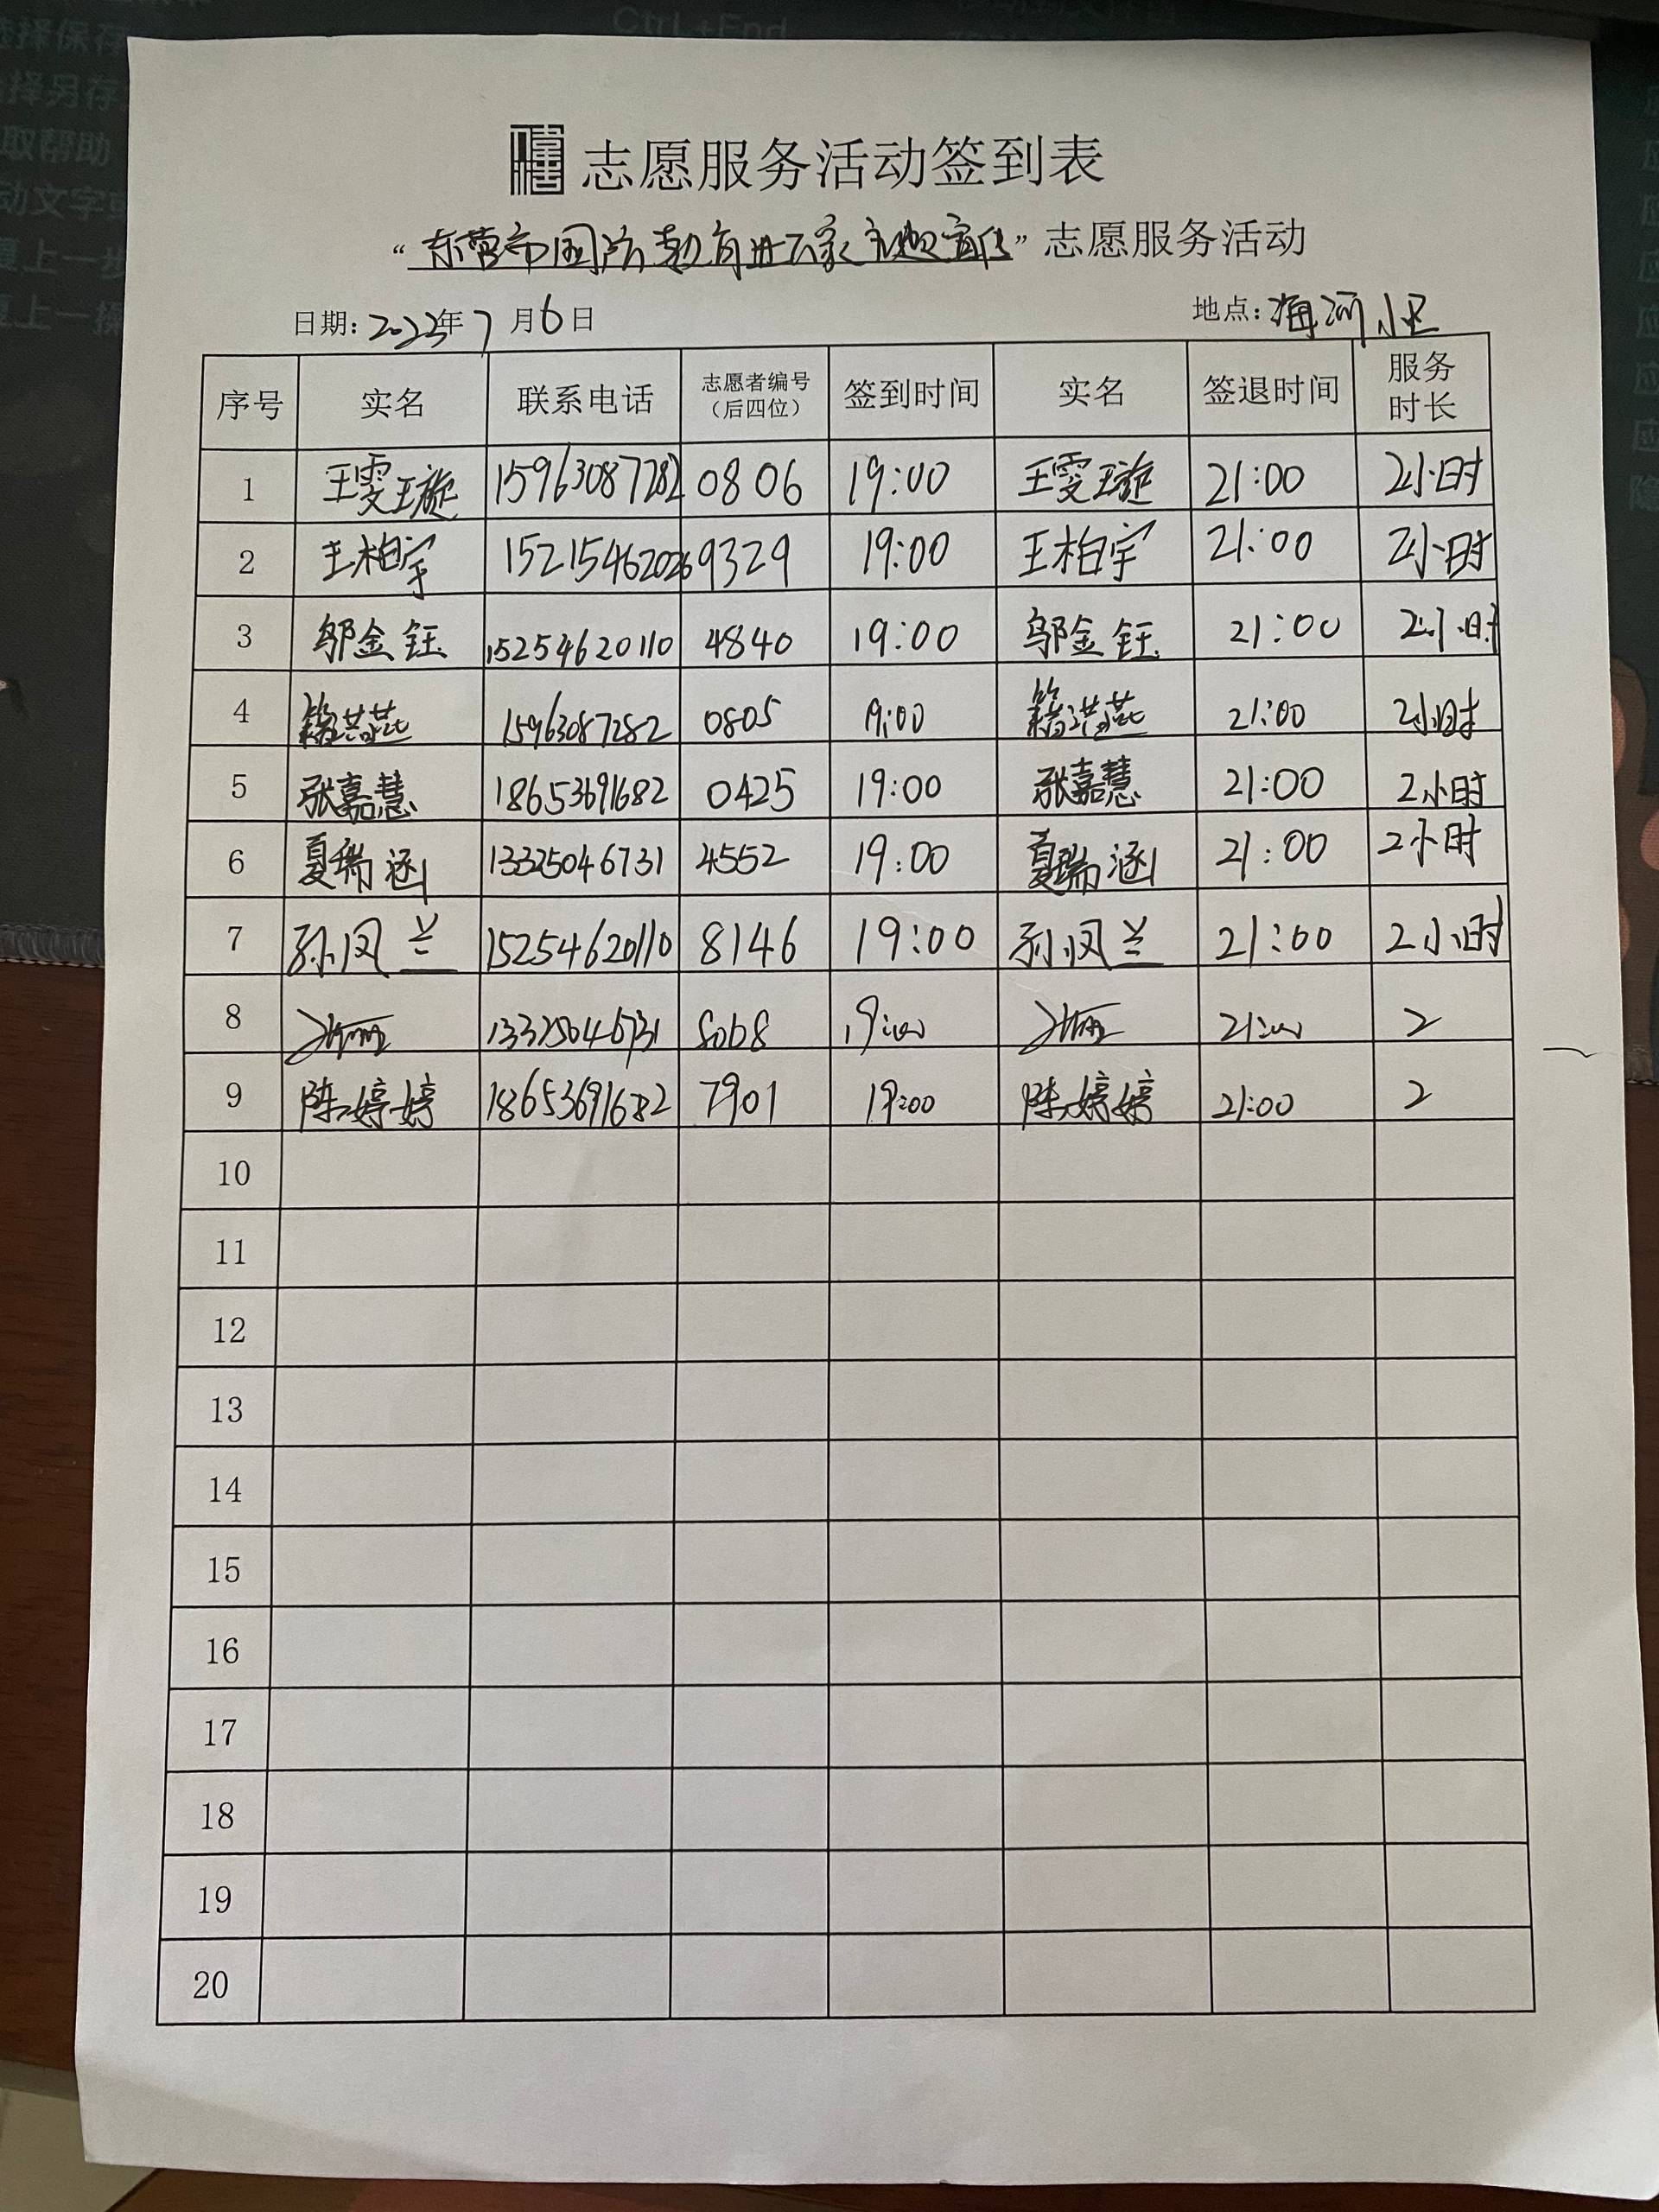 选择保存
Ctrl+End
选择另存
取帮助
动文字
覆上一步
覆上一操
志愿服务活动签到表
“东营市国防教育进万家主题宣传”志愿服务活动
日期:2022年7月6日 地点:海河小区
序号 实名 联系电话 志愿者编号(后四位) 签到时间 实名 签退时间 服务时长
1 王雯璇 15963087282 0806 19:00 王雯璇 21:00 2小时
2 王柏宇 15215462026 9329 19:00 王柏宇 21:00 2小时
3 邬金钰 15254620110 4840 19:00 邬金钰 21:00 2小时
4 籍洪燕 15963087282 0805 19:00 籍洪燕 21:00 2小时
5 张嘉慧 18653691682 0425 19:00 张嘉慧 21:00 2小时
6 夏瑞涵 13325046731 4552 19:00 夏瑞涵 21:00 2小时
7 孙凤兰 15254620110 8146 19:00 孙凤兰 21:00 2小时
8 13325046731 8068 19:00 21:00 2
9 陈婷婷 18653691682 7901 19:00 陈婷婷 21:00 2
10
11
12
13
14
15
16
17
18
19
20